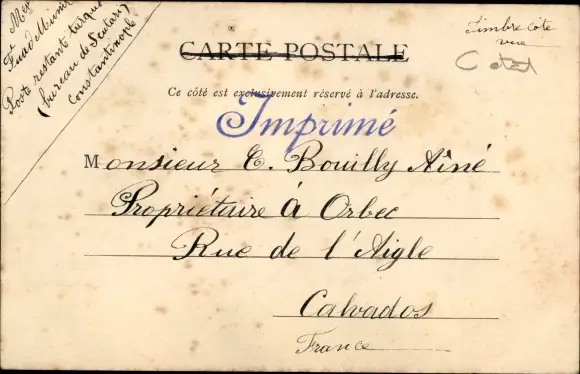 Mer
Fuad Munir
Poste restant turque
(bureau de Scutari)
Constantinople
Timbre côte
vue
CARTE POSTALE
Ce côté est exclusivement réservé à l'adresse.
Imprimé
Monsieur E. Bouilly Aîné
Propriétaire à Orbec
Rue de l'Aigle
Calvados
France